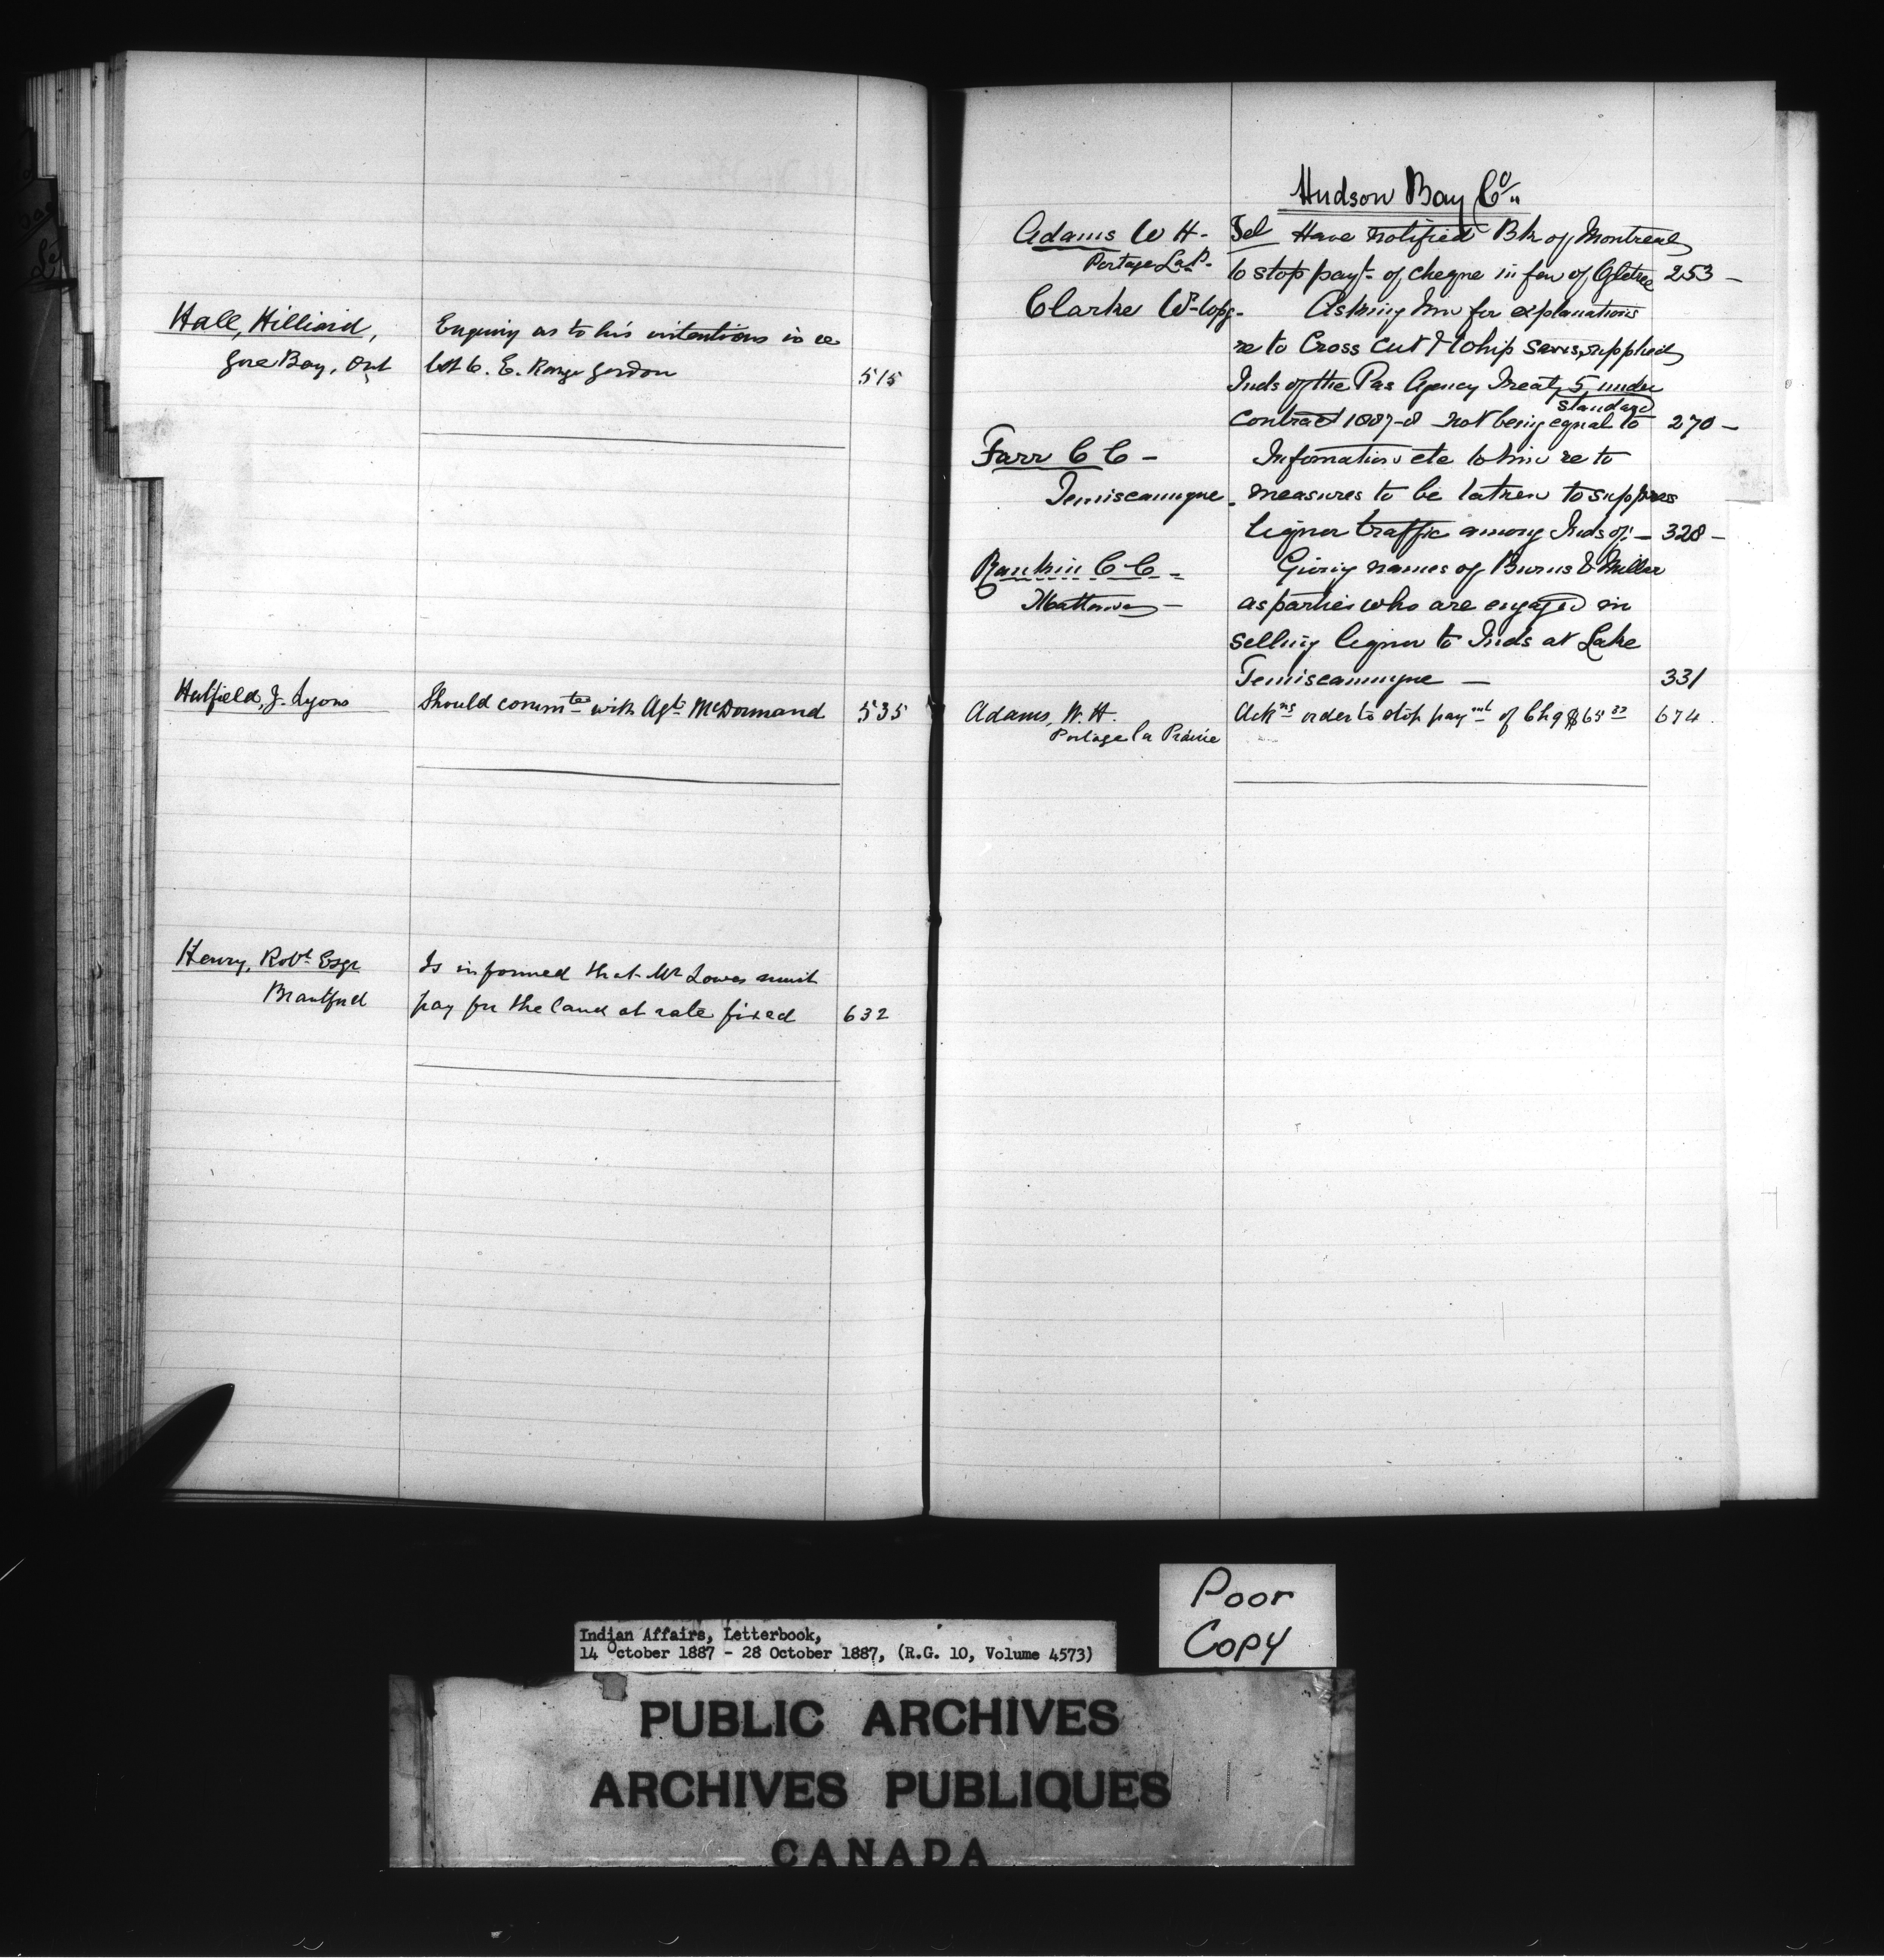 Hall, Hilliard,
Gore Bay, Ont
Enquiry as to his intentions in re
lot 6. E. Range Gordon
515
Hatfield, J. Lyons
Should commte with Agt McDormand
535
Henry, Robt Esqr
Brantford
Is informed that Mr Lowes must
pay for the land at rate fixed
632
Hudson Bay Co
Adams W H -
Portage La P.
Tel Have notified Bk of Montreal
to stop payt of cheque in fav of
253 -
Clarke W-
Asking him for explanations
re to Cross Cut & Whip Saws supplied
Inds of the Pas Agency Treaty 5 under
standard
Contract 1887-8 not being equal to
270 -
Farr C C -
Temiscamingue
Information etc to him re to
measures to be taken to suppress
liquor traffic among Inds of -
328 -
Rankin C C -
Mattawa -
Giving names of Burns & Miller
as parties who are engaged in
selling liquor to Inds at Lake
Temiscamingue -
331
Adams, W. H.
Portage la Prairie
Ackns order to stop paymt of Chq
674
Indian Affairs, Letterbook,
14 October 1887 - 28 October 1887, (R.G. 10, Volume 4573)
Poor
Copy
PUBLIC ARCHIVES
ARCHIVES PUBLIQUES
CANADA